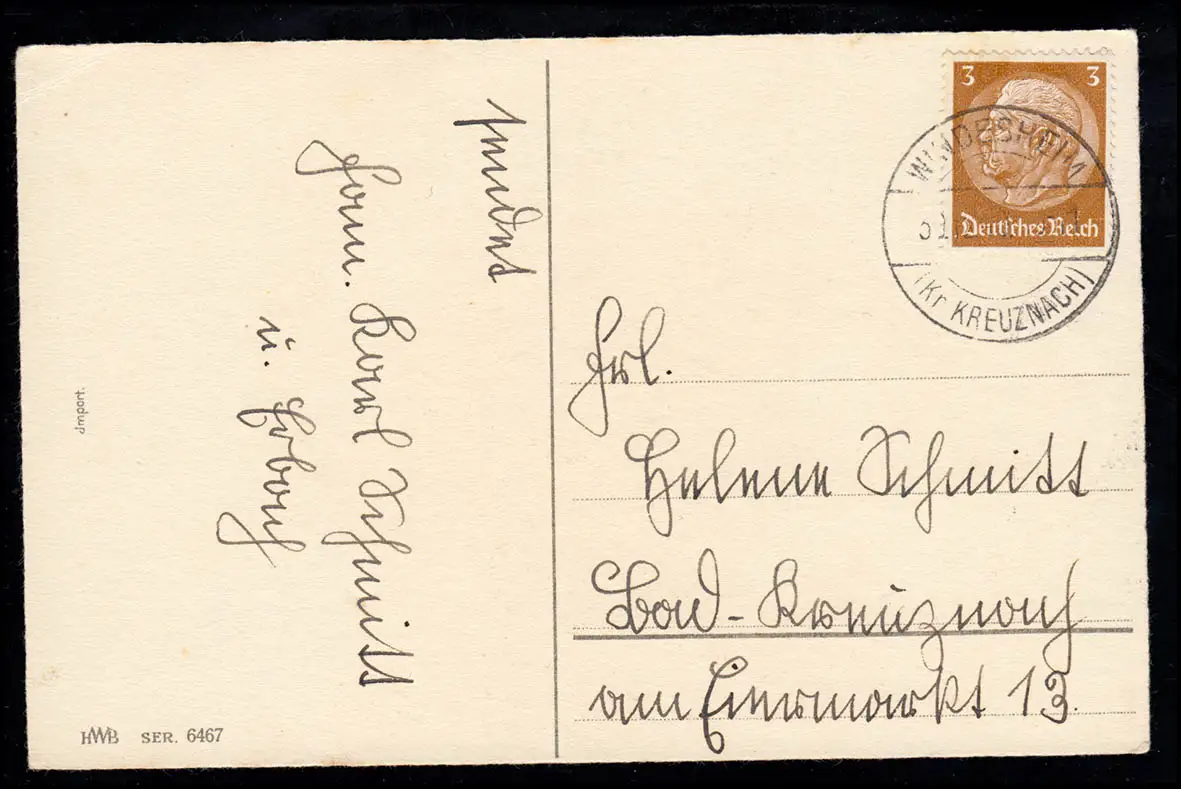 sendet
Fam. Karl Schmitt
u.
Jmport.
HWB SER. 6467
3 3
Deutsches Reich
WINDESHEIM
(Kr KREUZNACH)
Frl.
Helene Schmitt
Bad-Kreuznach
am Eiermarkt 13.